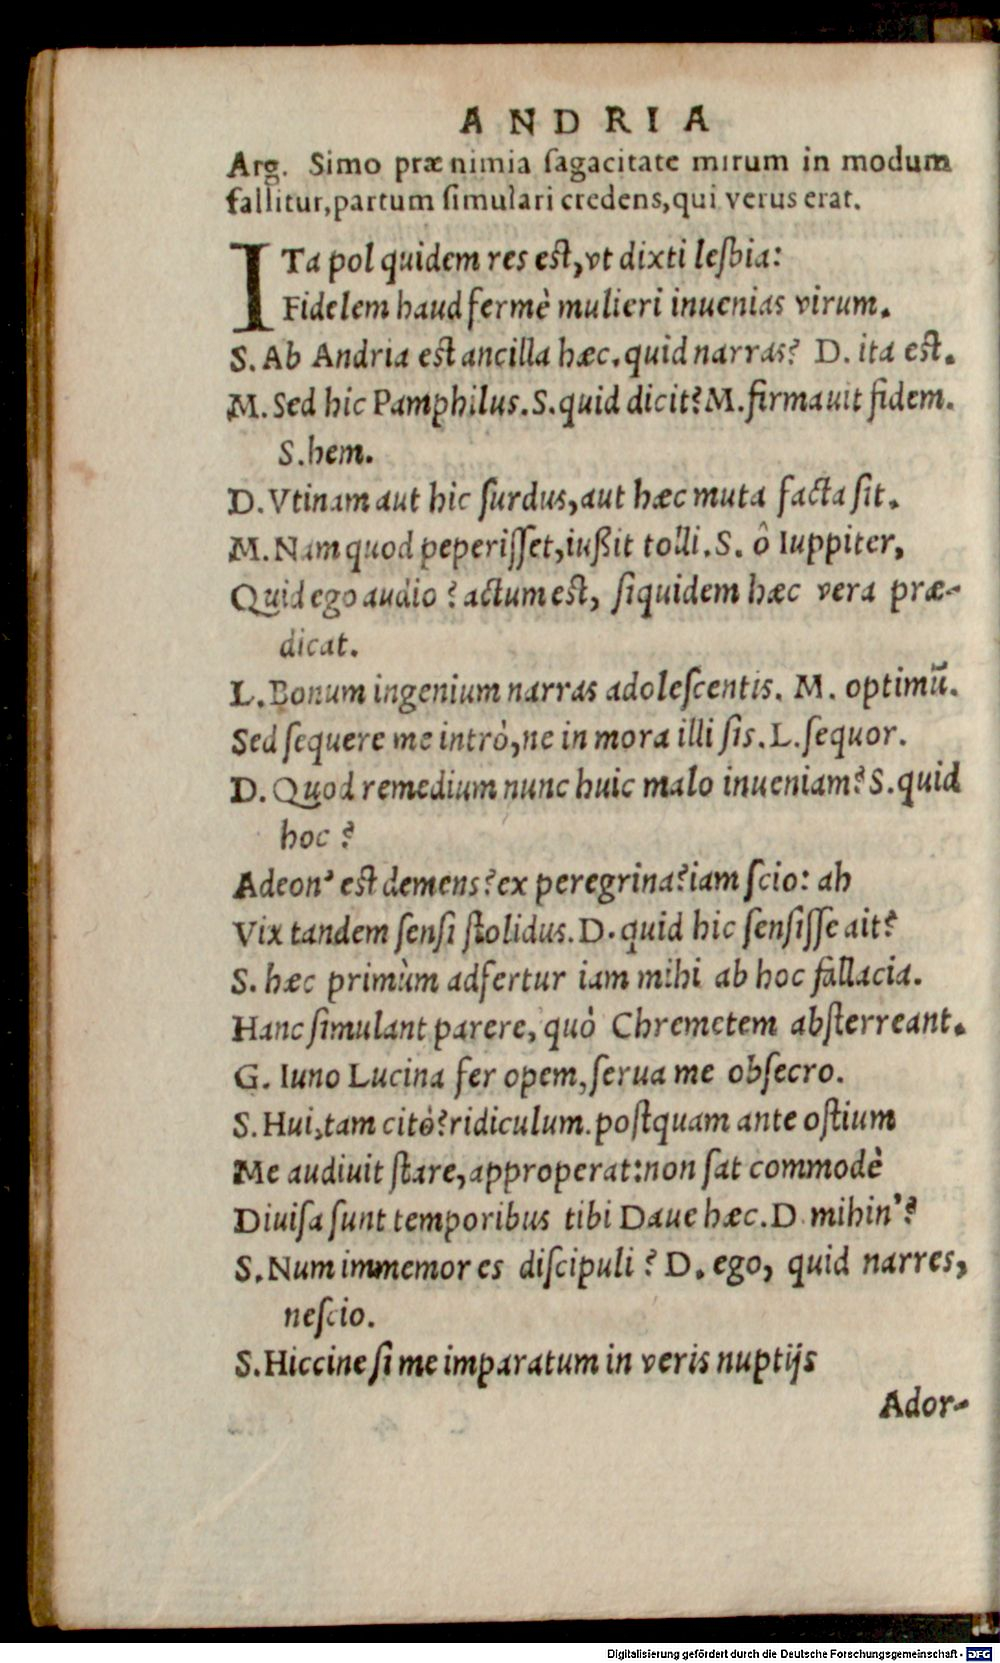 ANDRIA
Arg. Simo præ nimia ſagacitate mirum in modum
fallitur, partum ſimulari credens, qui verus erat.
ITa pol quidem res eſt, vt dixti leſbia:
Fidelem haud fermè mulieri inuenias virum.
S. Ab Andria eſt ancilla hæc. quid narras? D. ita eſt.
M. Sed hic Pamphilus. S. quid dicit? M. firmauit fidem.
S. hem.
D. Vtinam aut hic ſurdus, aut hæc muta facta ſit.
M. Nam quod peperiſſet, iußit tolli. S. ô Iuppiter,
Quid ego audio? actum eſt, ſiquidem hæc vera præ-
dicat.
L. Bonum ingenium narras adoleſcentis. M. optimū.
Sed ſequere me intrò, ne in mora illi ſis. L. ſequor.
D. Quod remedium nunc huic malo inueniam? S. quid
hoc?
Adeon' eſt demens? ex peregrina? iam ſcio: ah
Vix tandem ſenſi ſtolidus. D. quid hic ſenſiſſe ait?
S. hæc primùm adfertur iam mihi ab hoc fallacia.
Hanc ſimulant parere, quò Chremetem abſterreant.
G. Iuno Lucina fer opem, ſerua me obſecro.
S. Hui, tam citò? ridiculum. poſtquam ante oſtium
Me audiuit ſtare, approperat: non ſat commodè
Diuiſa ſunt temporibus tibi Daue hæc. D. mihin'?
S. Num immemor es diſcipuli? D. ego, quid narres,
neſcio.
S. Hiccine ſi me imparatum in veris nuptijs
Ador-
Digitalisierung gefördert durch die Deutsche Forschungsgemeinschaft - DFG